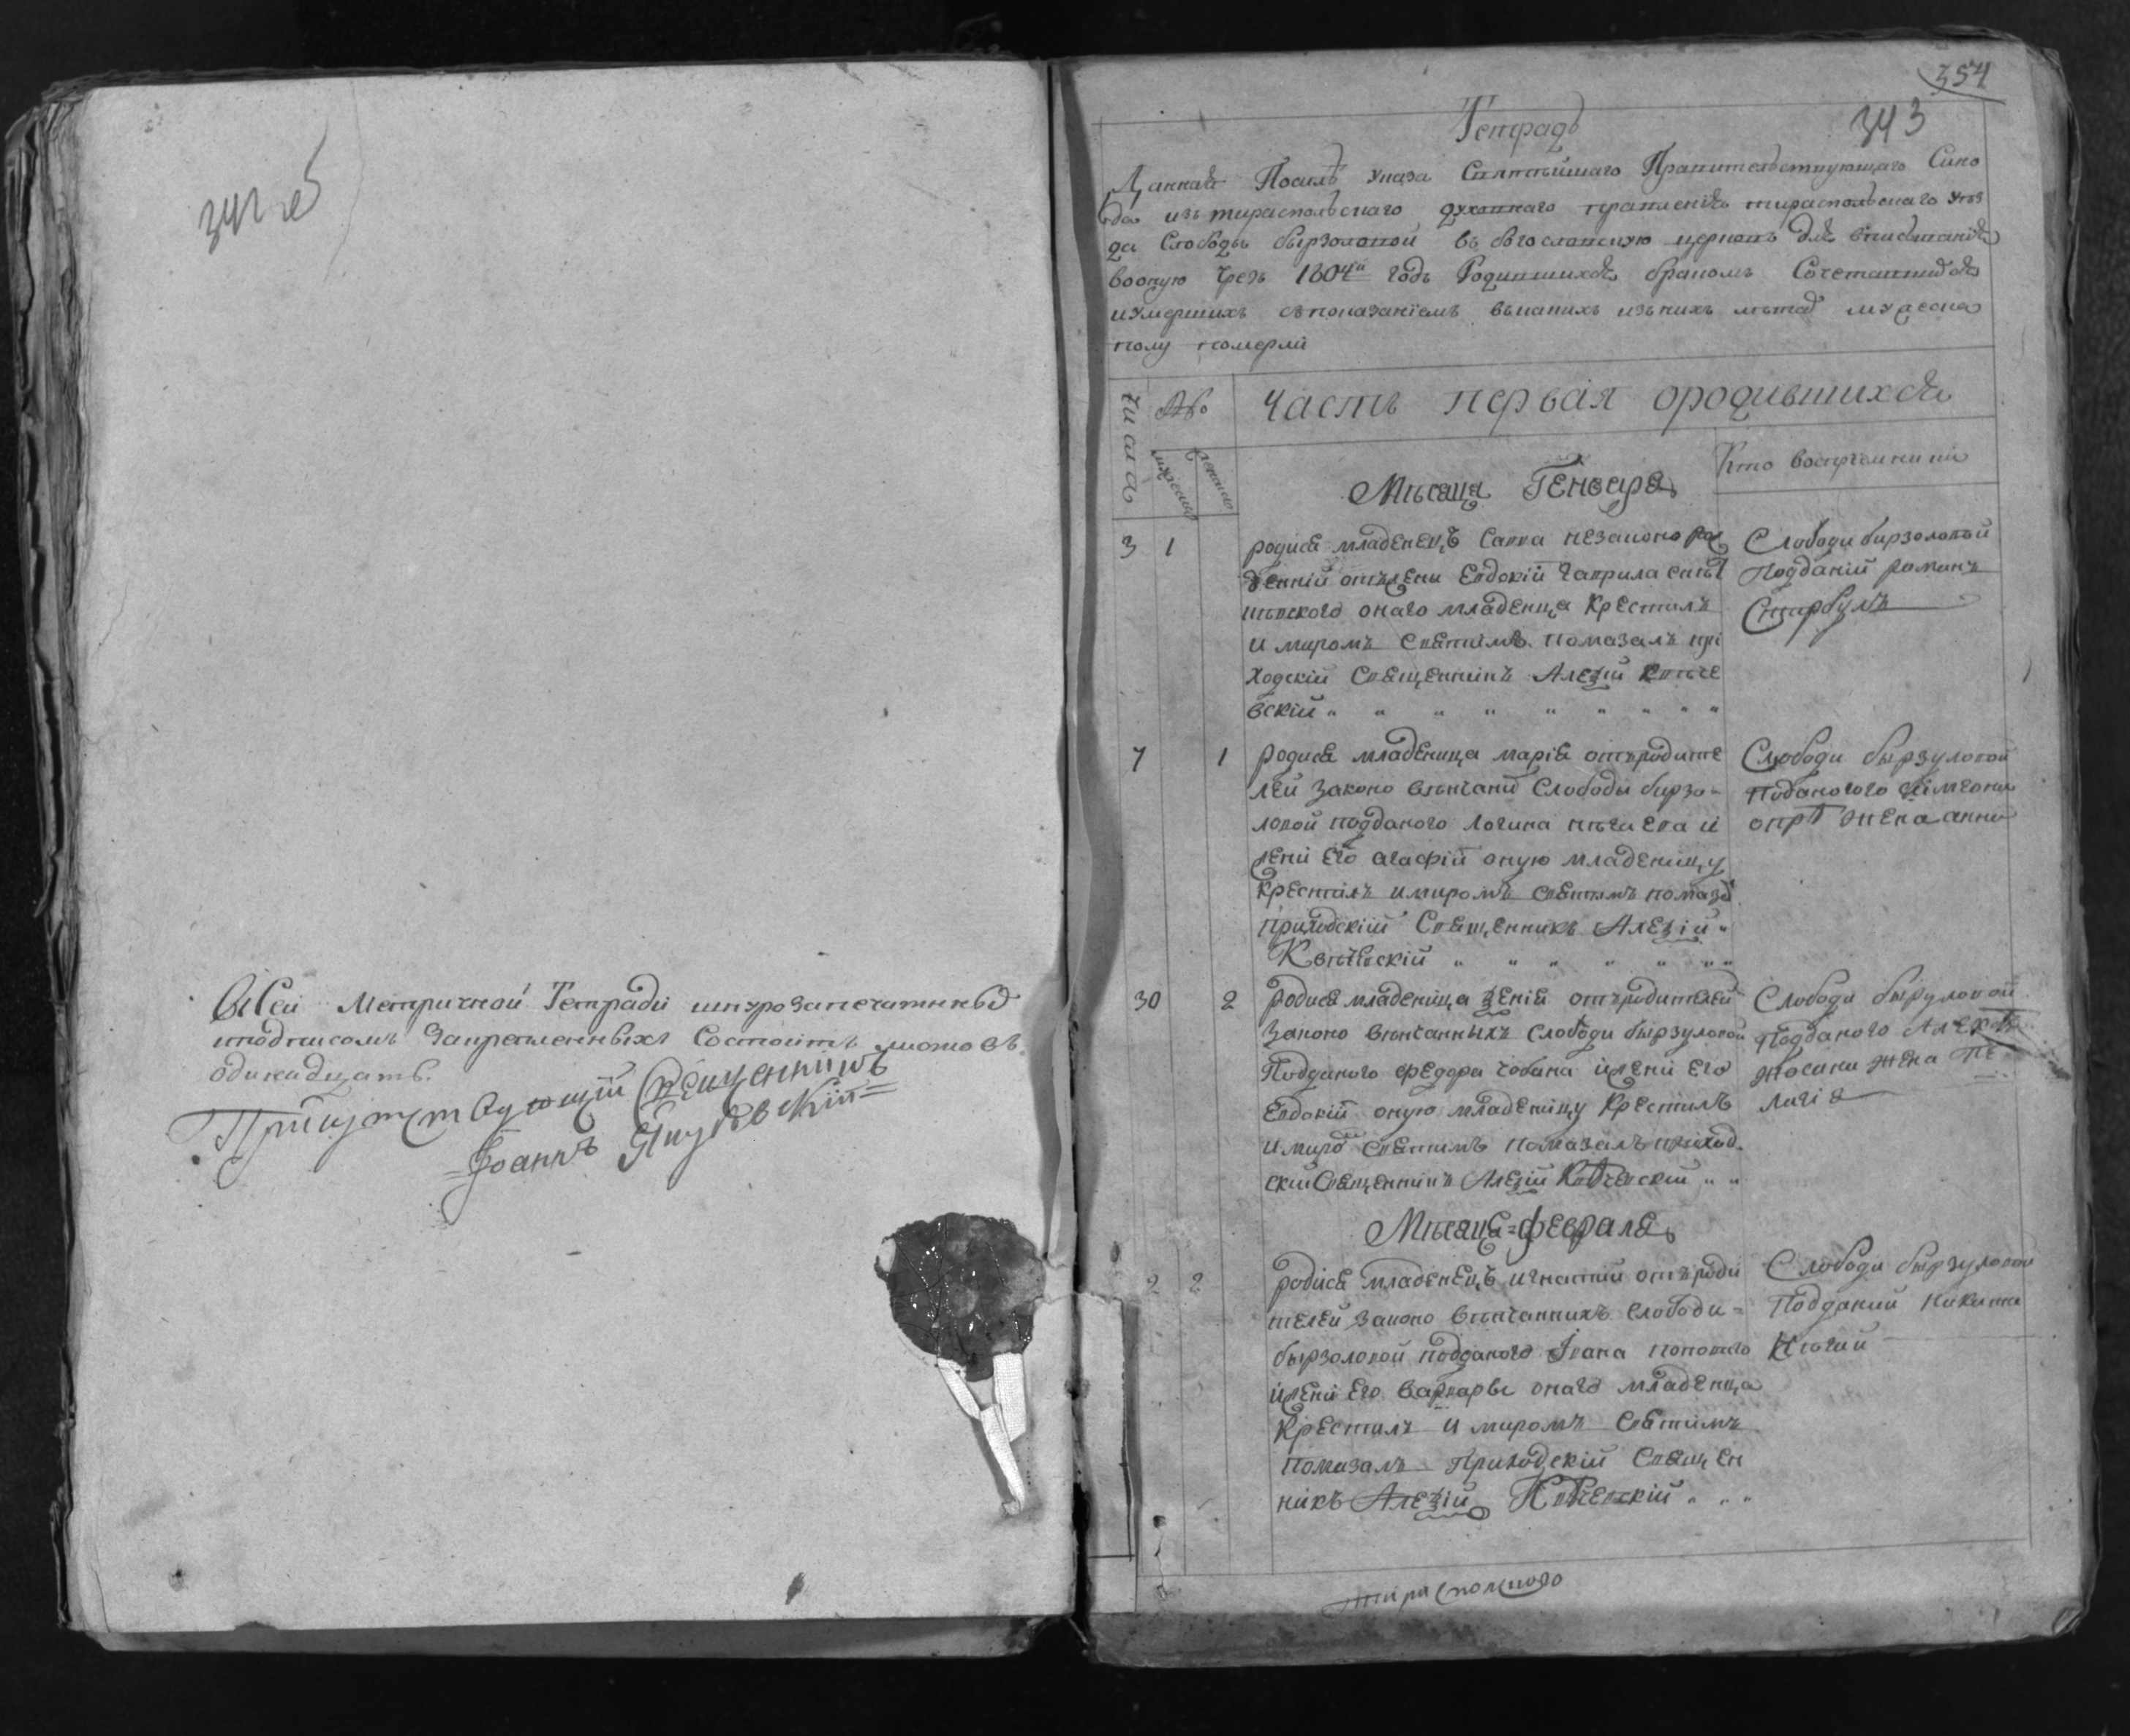 342 об
Въ Сей Метричной Тетради шнурозапечатанныд
подписомъ Закрепленныхъ Состоитъ листовъ
одинадцать.
Присутствующій Священникъ
Іоаннъ
354
343
Тетрадь
Данная Посилѣ указа Святѣйшаго Правителствующаго Сино
да изъ тираспольскаго духовнаго правленія тираспольскаго уѣз
да Слободы бырзоловой въ богословскую церковь для вписыванія
вооную чрезъ 1804й годъ Родившихся бракомъ Сочетавшихся
иумершихъ съпоказаніемъ въкакихъ изънихъ лѣтах мужеска
полу померли
числа
№
часть первая ородившихся
мужеска
женска
Кто воспріемники
Мѣсяца Генваря
3 1 родися младенецъ Савва незаконо рож
денній отъжени Евдокій Гаврила
онаго младенца Крестилъ
и миромъ Святимъ помазалъ при
ходскій Священникъ Алезій Квѣче
вскій
Слободи бирзоловой
Подданій романъ
Старбулъ
7 1 родися младеница марія отъродите
лей законо вѣнчаних Слободи бирзо-
ловой подданого Логина и
жени его агафій оную младеницу
крестилъ имиромъ святимъ помаза
приходскій Священникъ Алезій
Квѣчевскій
Слободи бырзуловой
Поданогого
жена анна
30 2 родися младеница отъродителей
Законо вѣнчанныхъ Слободи бырзуловой
Подданого Федора Чобана ижени его
Евдокій оную младеницу Крестилъ
имиро Святимъ помазалъ приход
скій Священникъ Алезій Квѣчевскій
Слободи бырзуловой
Подданого
жена Пе
лагія
Мѣсяца=февраля
2 2 родися младенецъ игнатій отъроди
телей законо вѣнчаннихъ слободи=
бырзоловой подданого Івана
ижени его варвары онаго младенца
Крестилъ и миромъ Святимъ
помазалъ Приходскій Священ
никъ Алезій Квѣчевскій
Слободи бырзуловой
Подданий Никита
тираспольского